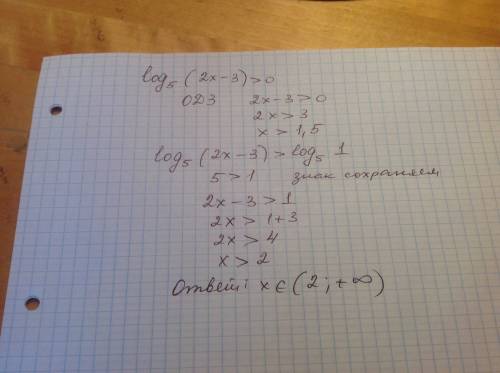 log₅(2x-3)>0
ОДЗ 2x-3>0
2x>3
x>1,5
log₅(2x-3)>log₅ 1
5>1 знак сохраняем
2x-3>1
2x>1+3
2x>4
x>2
Ответ: x∈(2;+∞)